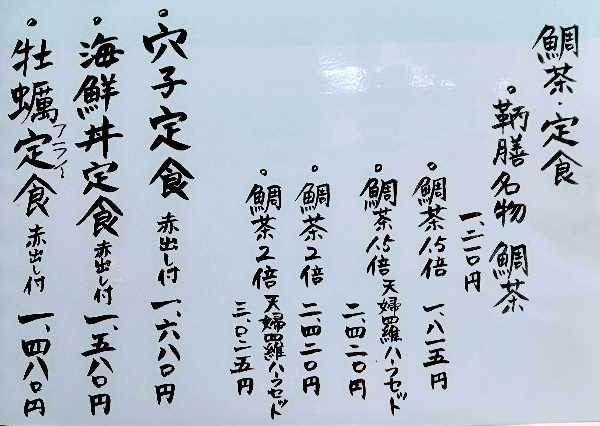 鯛茶・定食
。鞆膳名物 鯛茶
一、二一〇円
。鯛茶1.5倍 一、八一五円
。鯛茶1.5倍 天婦羅ハーフセット
二、四二〇円
。鯛茶2倍 二、四二〇円
。鯛茶2倍 天婦羅ハーフセット
三、〇二五円
。穴子定食 赤出し付 一、六八〇円
。海鮮丼定食 赤出し付 一、五八〇円
。牡蠣フライ定食 赤出し付 一、四八〇円